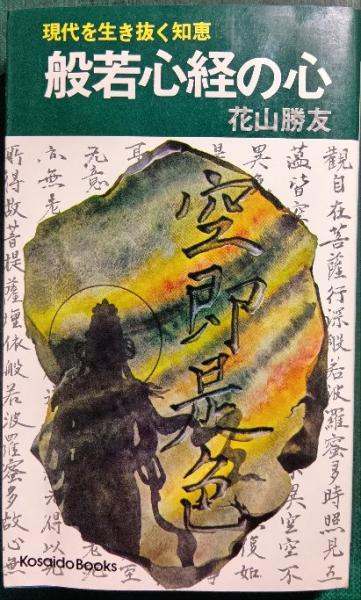 現代を生き抜く知恵
般若心経の心
花山勝友
空即是色
觀自在菩薩行深般若波羅蜜多時照見五
蘊皆空
不異空空不
異
復如
是
耳
至
意
得以无
所得故菩提薩埵依般若波羅蜜多故心無
Kosaido Books